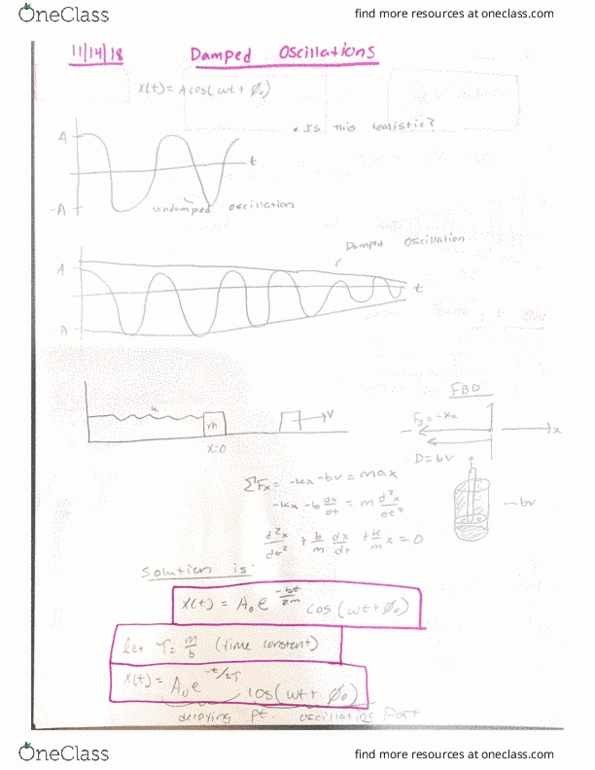 OneClass
find more resources at oneclass.com
11/14/18 Damped Oscillations
x(t) = A cos(ωt + φ₀)
• Is this realistic?
A
t
-A
undamped oscillation
Damped Oscillation
A
t
-A
FBD
k
m
v
x=0
Fs = -kx
x
D = bv
ΣFx = -kx - bv = max
-kx - b dx/dt = m d²x/dt²
-bv
d²x/dt² + b/m dx/dt + k/m x = 0
Solution is:
x(t) = A₀e^(-bt/2m) cos(ωt + φ₀)
let τ = m/b (time constant)
x(t) = A₀e^(-t/2τ) cos(ωt + φ₀)
decaying pt oscillating Part
OneClass
find more resources at oneclass.com